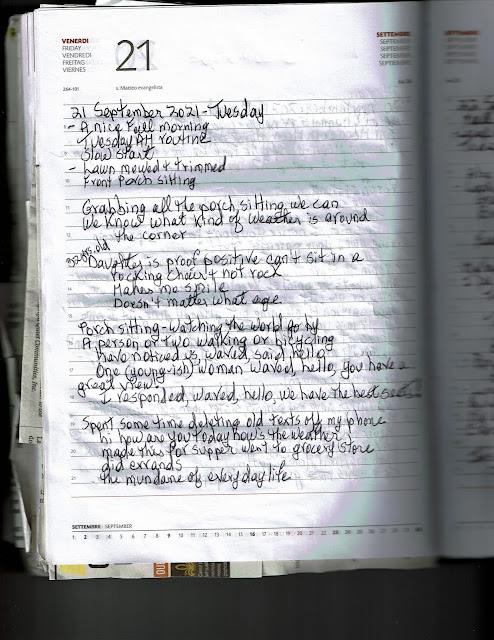 VENERDI
FRIDAY
VENDREDI
FREITAG
VIERNES
21
264-101
s. Matteo evangelista
SETTEMBRE
SEPTEMBER
21 September 2021 - Tuesday
- A nice Fall morning
Tuesday AM routine
Slow start
- Lawn mowed + trimmed
Front Porch sitting
Grabbing all the porch sitting we can
We know what kind of weather is around
the corner
yrs. old
Daughter is proof positive can't sit in a
rocking chair + not rock
Makes me smile
Doesn't matter what age
Porch sitting - watching the world go by
A person or two walking or bicycling
have noticed us, waved, said hello
One (young-ish) woman waved, hello, you have a
great view!
I responded, waved, hello, we have the best seats
Spent some time deleting old texts off my phone
hi how are you today how's the weather
made this for supper went to grocery store
did errands
the mundane of everyday life
SETTEMBRE SEPTEMBER
1 2 3 4 5 6 7 8 9 10 11 12 13 14 15 16 17 18 19 20 21 22 23 24 25 26 27 28 29 30